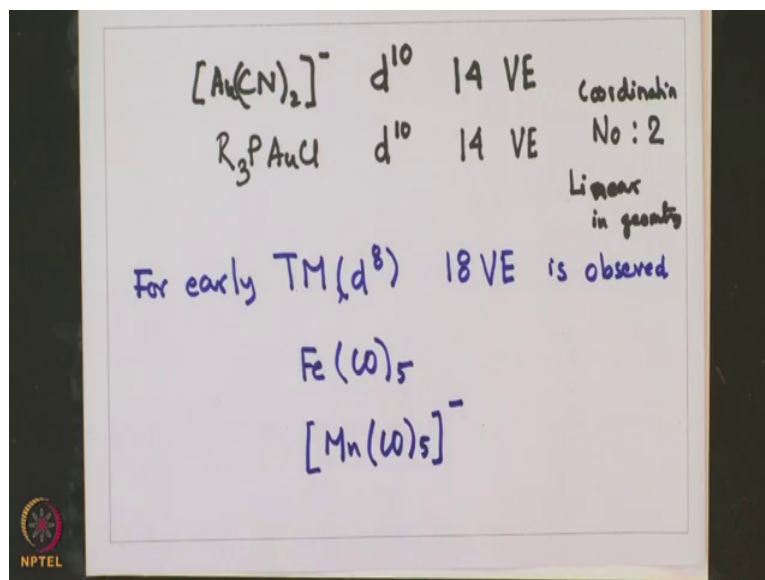 [Au(CN)₂]⁻ d¹⁰ 14 VE
R₃PAuCl d¹⁰ 14 VE
Coordinatin
No : 2
Linear
in geomtry
For early TM(d⁸) 18 VE is observed
Fe(CO)₅
[Mn(CO)₅]⁻
NPTEL